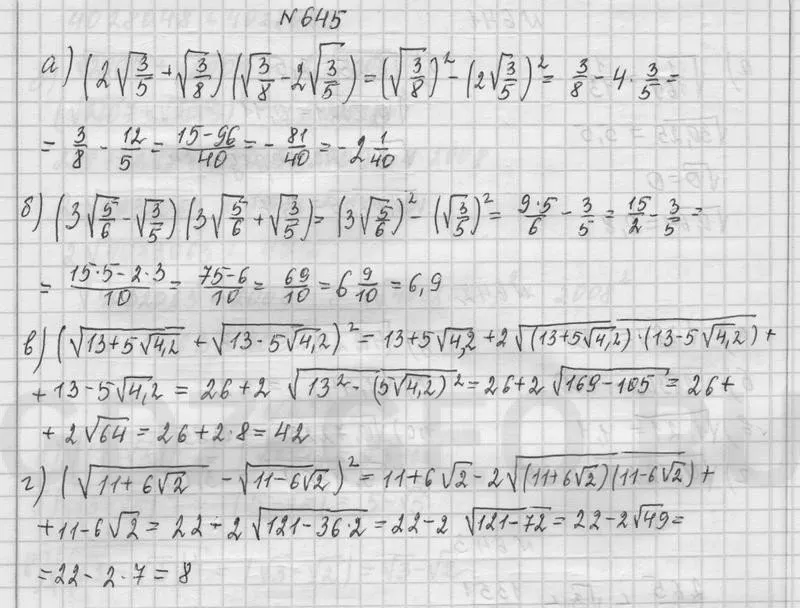 №645
а) (2√3/5 + √3/8) (√3/8 - 2√3/5) = (√3/8)² - (2√3/5)² = 3/8 - 4 · 3/5 =
= 3/8 - 12/5 = 15-96/40 = - 81/40 = -2 1/40
б) (3√5/6 - √3/5) (3√5/6 + √3/5) = (3√5/6)² - (√3/5)² = 9·5/6 - 3/5 = 15/2 - 3/5 =
= 15·5-2·3/10 = 75-6/10 = 69/10 = 6 9/10 = 6,9
в) (√13+5√4,2 + √13-5√4,2)² = 13+5√4,2 + 2√(13+5√4,2)·(13-5√4,2) +
+ 13-5√4,2 = 26+2 √13² - (5√4,2)² = 26+2 √169-105 = 26+
+ 2√64 = 26+2·8 = 42
г) (√11+6√2 - √11-6√2)² = 11+6√2 - 2√(11+6√2)(11-6√2) +
+11-6√2 = 22-2 √121-36·2 = 22-2 √121-72 = 22-2√49 =
=22-2·7=8